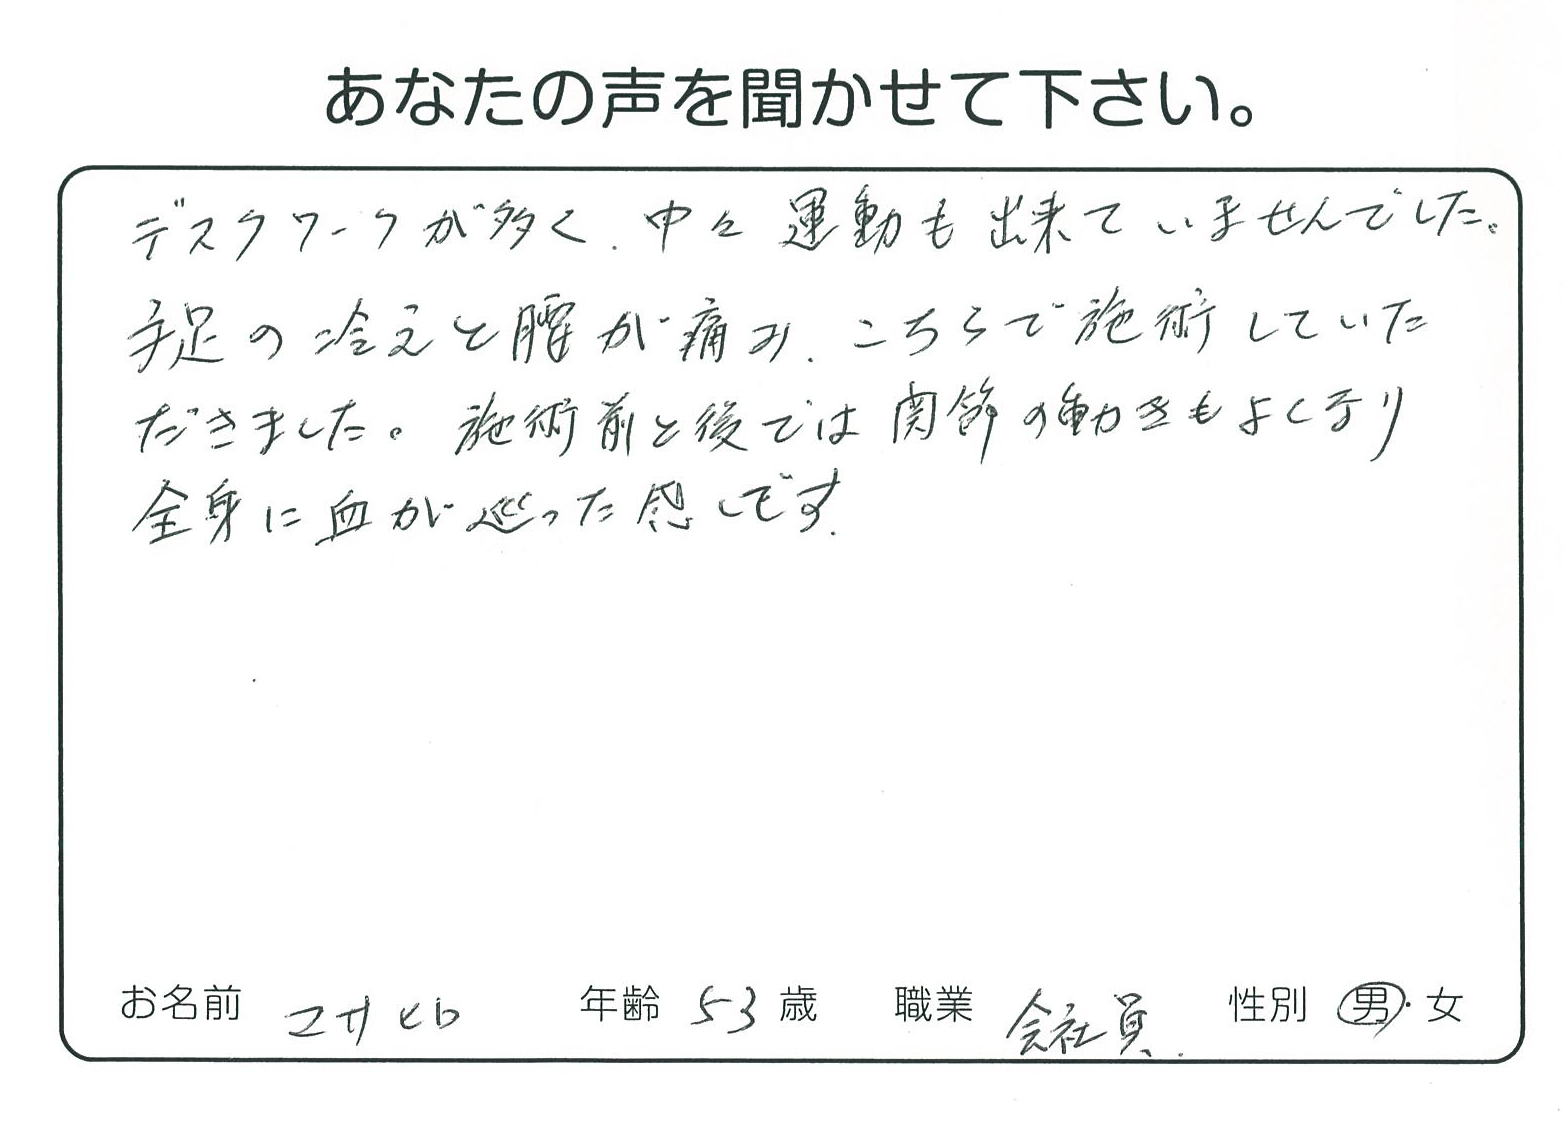 あなたの声を聞かせて下さい。
デスクワークが多く、中々運動も出来ていませんでした。
手足の冷えと腰が痛み、こちらで施術していた
だきました。施術前と後では関節の動きもよくなり
全身に血が巡った感じです。
お名前 年齢 53 歳 職業 会社員. 性別 男・女